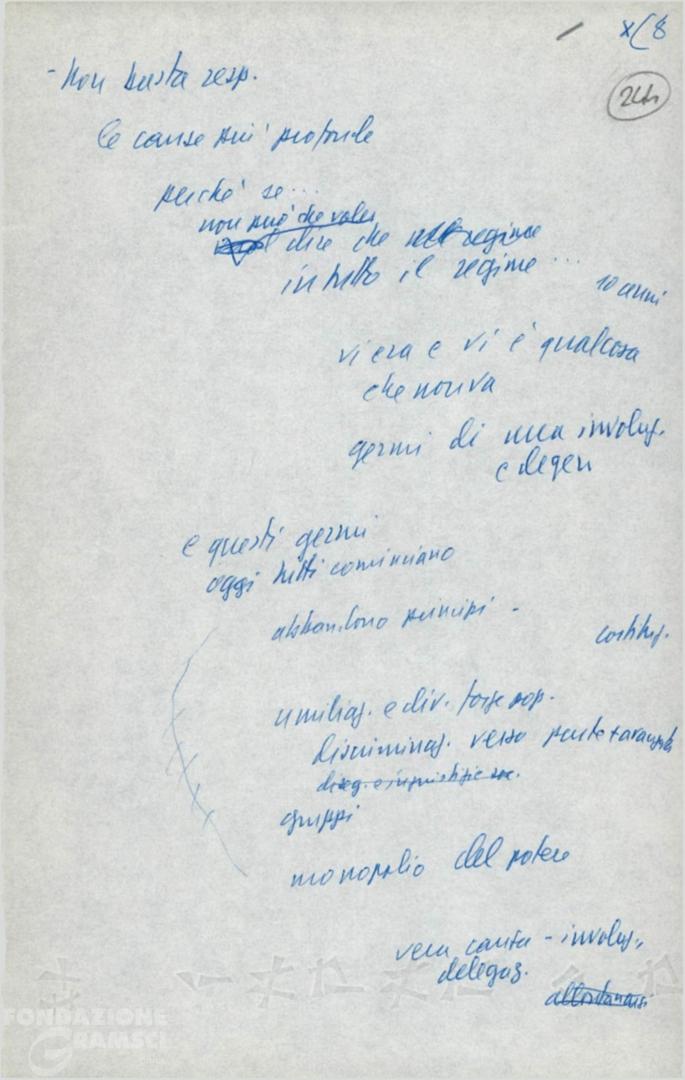 x(8
24
- Non basta resp.
le cause più profonde
perché se...
non può che voler
dire che nel regime
in tutto il regime...
10 anni
vi era e vi è qualcosa
che non va
germi di una involuz.
e degen
e questi germi
oggi tutti cominciano
abbandono principi -
costituz.
umiliaz. e div. forze pop.
discriminaz. verso parte + avanzata
diseg. e ingiustizie soc.
gruppi
monopolio del potere
vera causa - involuz.,
degeneraz.
allontanarsi
FONDAZIONE
GRAMSCI